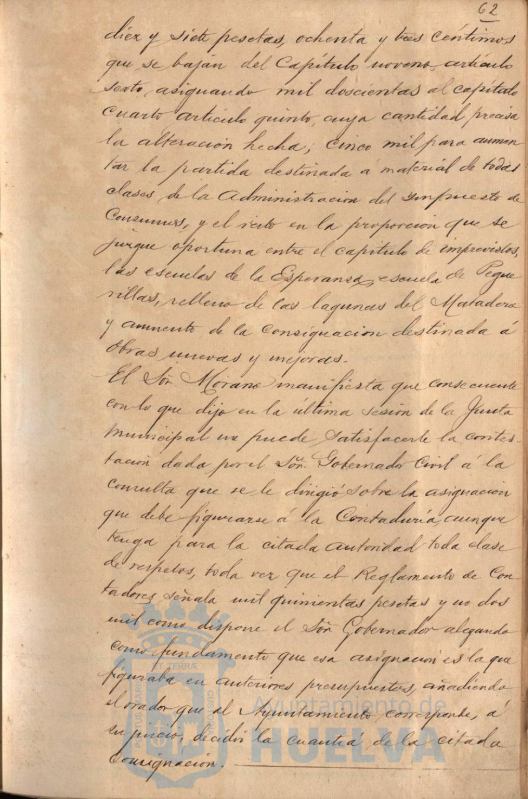 62
diez y siete pesetas, ochenta y tres céntimos
que se bajan del Capítulo noveno, artículo
sexto, asignando mil doscientas al capítulo
cuarto artículo quinto, cuya cantidad precisa
la alteración hecha; cinco mil para aumen
tar la partida destinada a material de todas
clases de la Administracion del Impuesto de
Consumos, y el resto en la proporcion que se
juzgue oportuna entre el capitulo de imprevistos,
las escuelas de la Esperanza, escuela de Pegue
rillas, relleno de las lagunas del Matadero
y aumento de la consignacion destinada á
obras nuevas y mejoras.
El Sor. Morano manifiesta que consecuente
con lo que dijo en la última sesión de la Junta
Municipal no puede satisfacerle la contes-
tación dada por el Sor. Gobernador Civil á la
consulta que se le dirigió sobre la asignacion
que debe figurarse á la Contaduría, aunque
tenga para la citada autoridad toda clase
de respetos, toda vez que el Reglamento de Con
tadores señala mil quinientas pesetas y no dos
mil como dispone el Sor. Gobernador alegando
como fundamento que esa asignacion es la que
figuraba en anteriores presupuestos, añadiendo
el orador que al Ayuntamiento corresponde, á
su juicio, decidir la cuantía de la citada
Consignacion.
PORTUS MARIS
ET TERRÆ
CUSTODIO
Ayuntamiento de
HUELVA